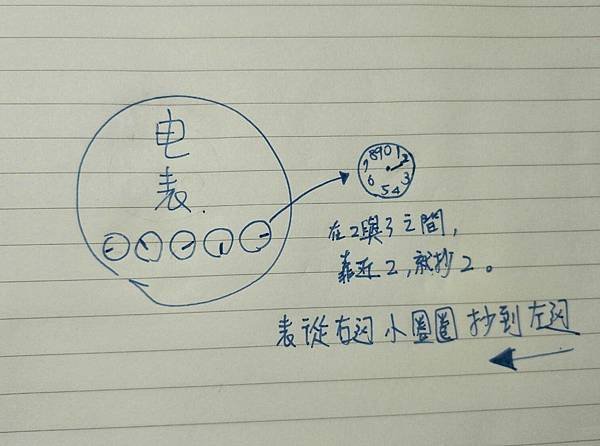 电
表.
8901
7 2
6 3
54
在2與3之間,
靠近2,就抄2。
表從右边小圈圈抄到左边